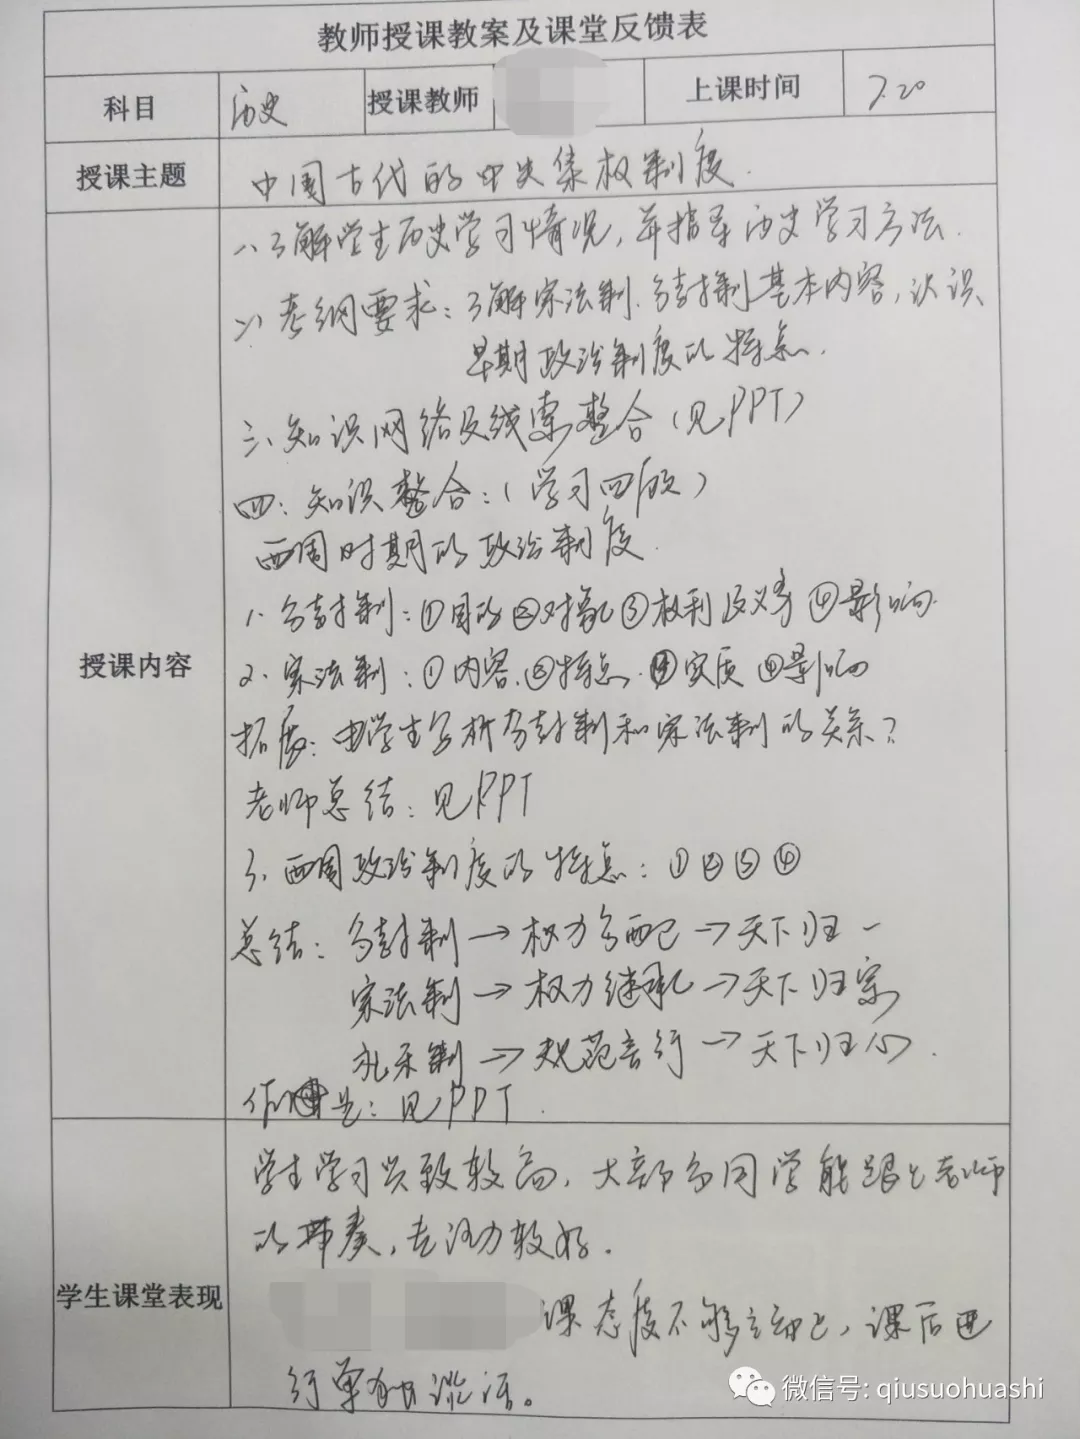 教师授课教案及课堂反馈表
科目 历史 授课教师 上课时间 7.20
授课主题 中国古代的中央集权制度.
授课内容
一、了解学生历史学习情况,并指导历史学习方法.
二、考纲要求:了解宗法制、分封制基本内容,认识
早期政治制度的特点.
三、知识网络及线索整合(见PPT)
四:知识整合:(学习四放)
西周时期的政治制度.
1.分封制:①目的②对象③权利及义务④影响.
2.宗法制:①内容.②特点.③实质④影响
拓展:由学生分析分封制和宗法制的关系?
老师总结:见PPT
3.西周政治制度的特点:①②③④
总结:分封制→权力分配→天下归一
宗法制→权力继承→天下归宗
礼乐制→规范言行→天下归心.
作业:见PPT.
学生课堂表现
学生学习兴致较高,大部分同学能跟上老师
的节奏,专注力较好.
课态度不够主动,课后进
行单独谈话。
微信号: qiusuohuashi